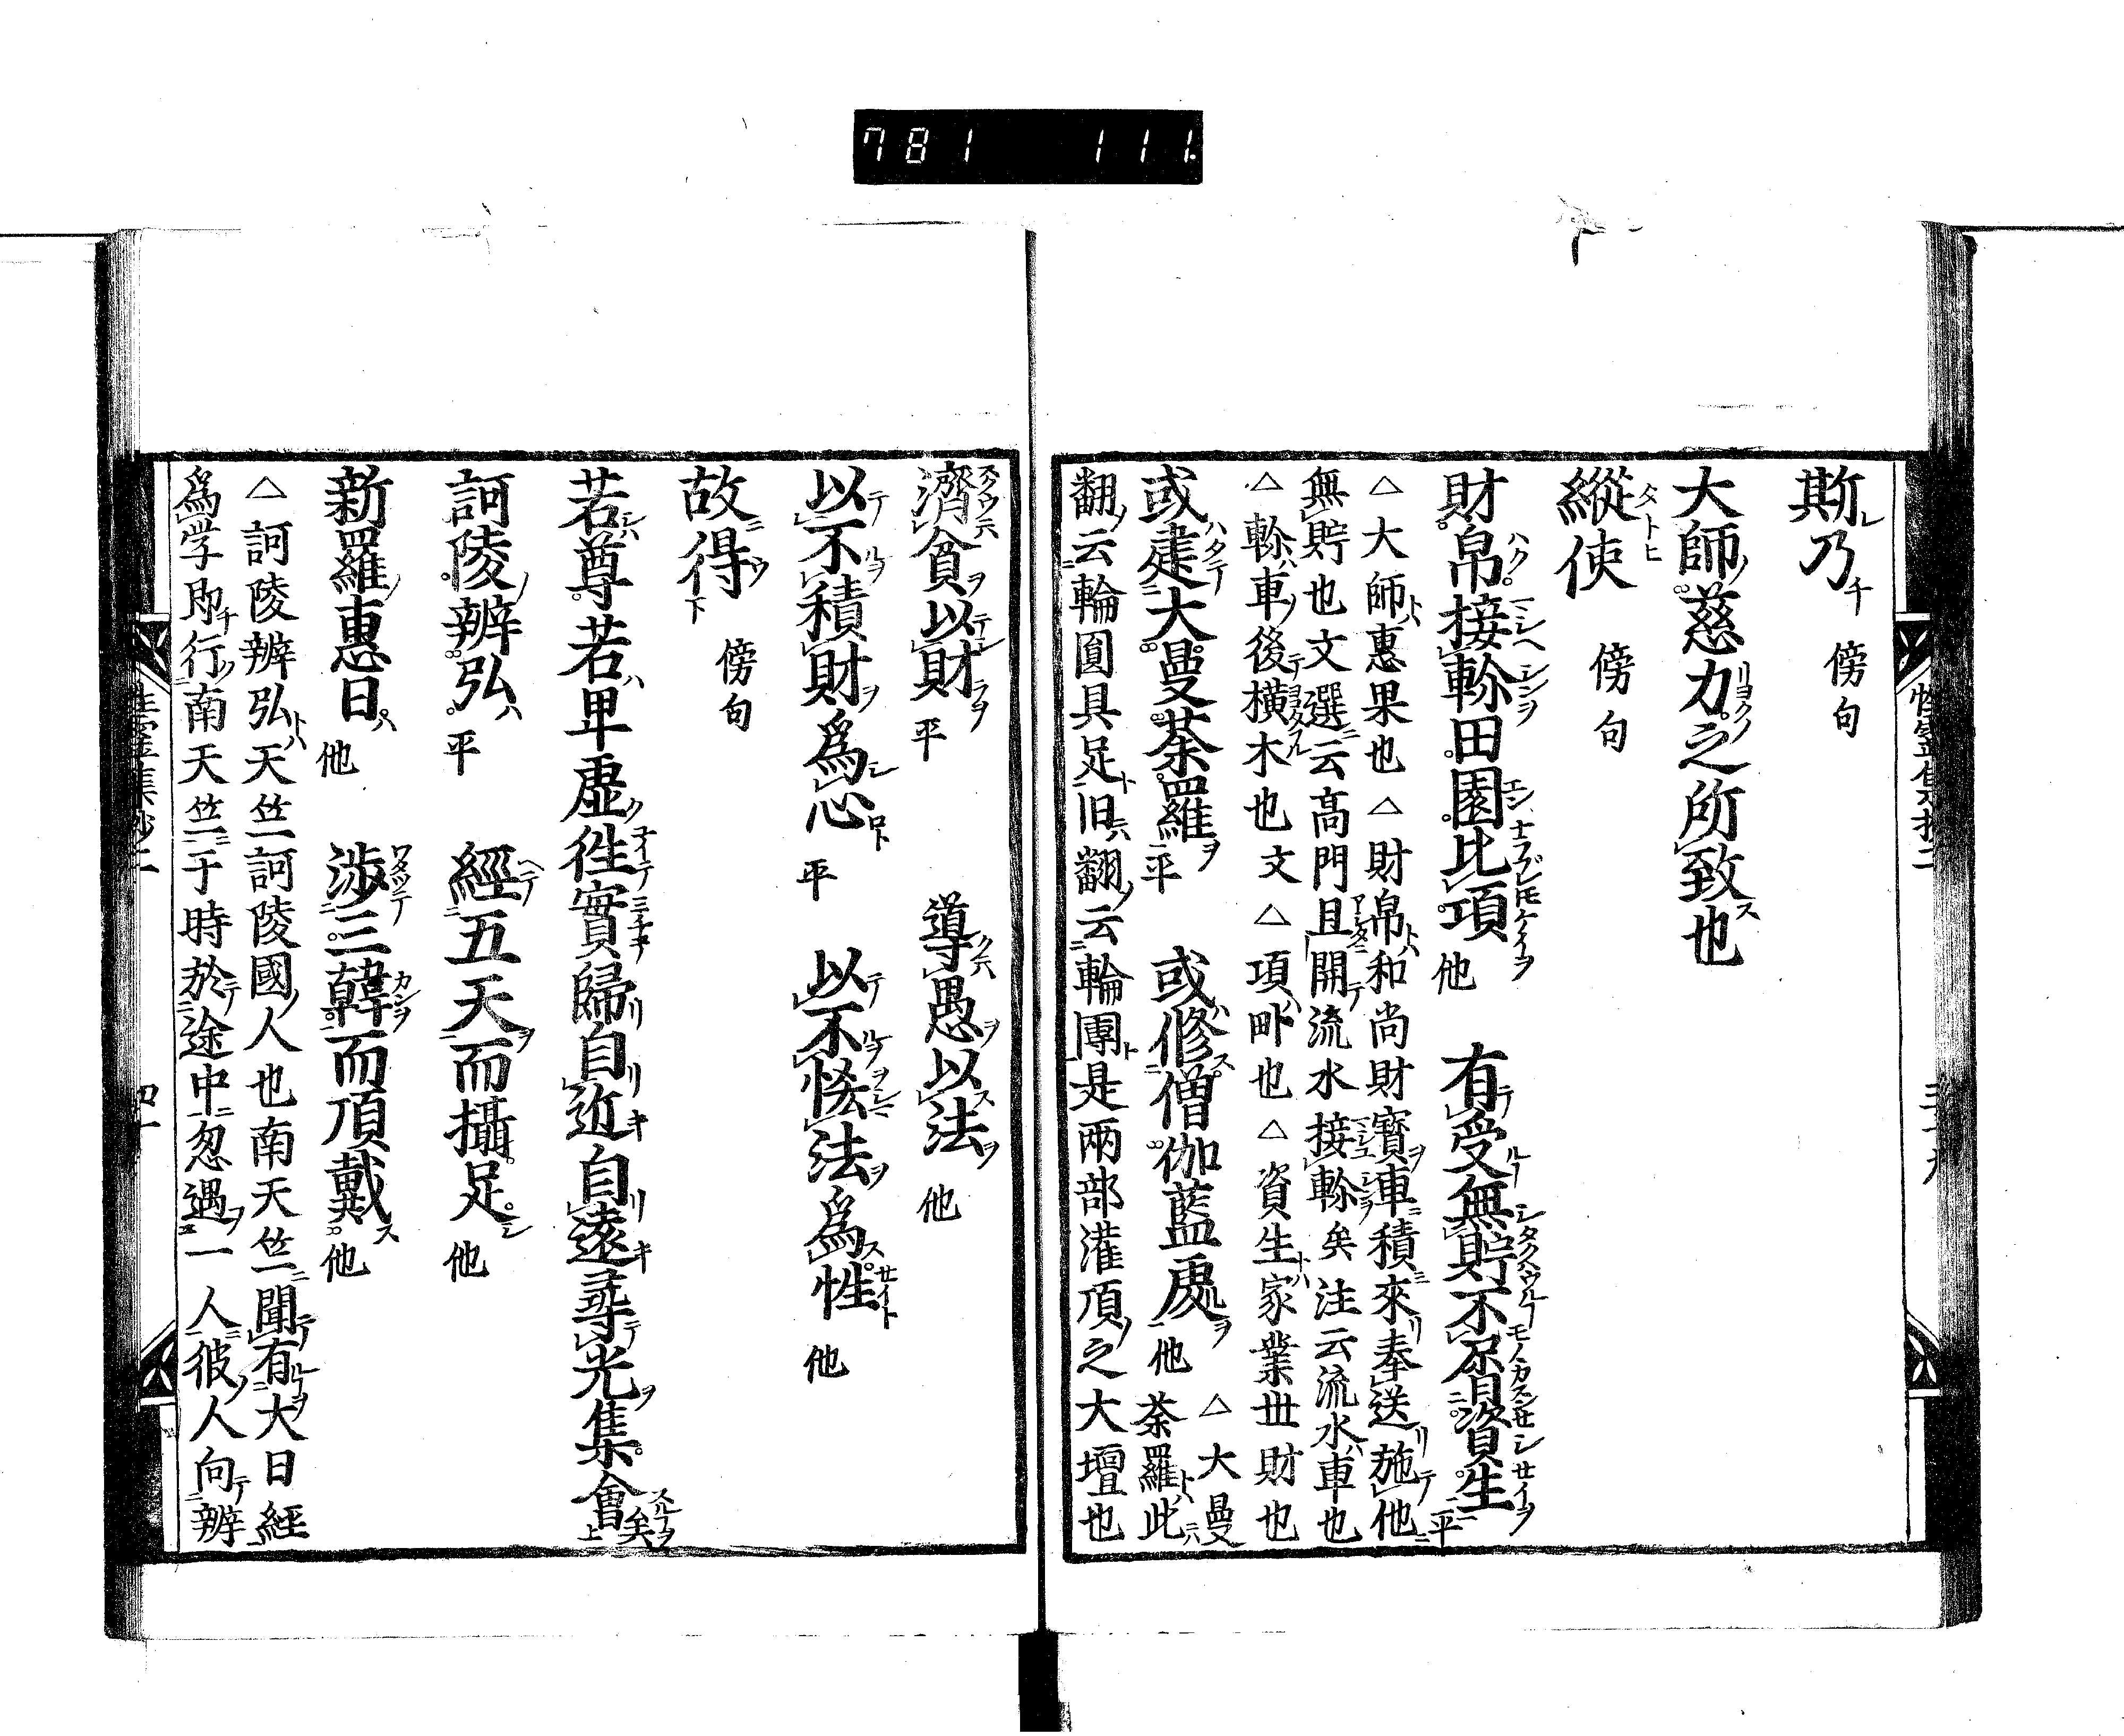 781 111.
斯乃 傍句
大師慈力之所致也
縱使 傍句
財帛接軫田園比頃 他 有受無貯不屑資生 平
△大師惠果也△財帛和尚財寶車積來奉送施他
無貯也文選云高門且開流水接軫矣注云流水車也
△軫車後橫木也文△項畔也△資生家業世財也
或建大曼荼羅 平 或修僧伽藍處 他 △大曼荼羅此
翻云輪圓具足旧翻云輪團是兩部灌頂之大壇也
濟貧以財 平 導愚以法 他
以不積財爲心 平 以不恡法爲性 他
故得 傍句
若尊若卑虛徃實歸自近自遠尋光集會矣
訶陵辨弘 平 經五天而攝足 他
新羅惠日 他 涉三韓而頂戴 他
△訶陵辨弘天竺訶陵國人也南天竺聞有大日經
爲学即行南天竺于時於途中忽遇一人彼人向辨